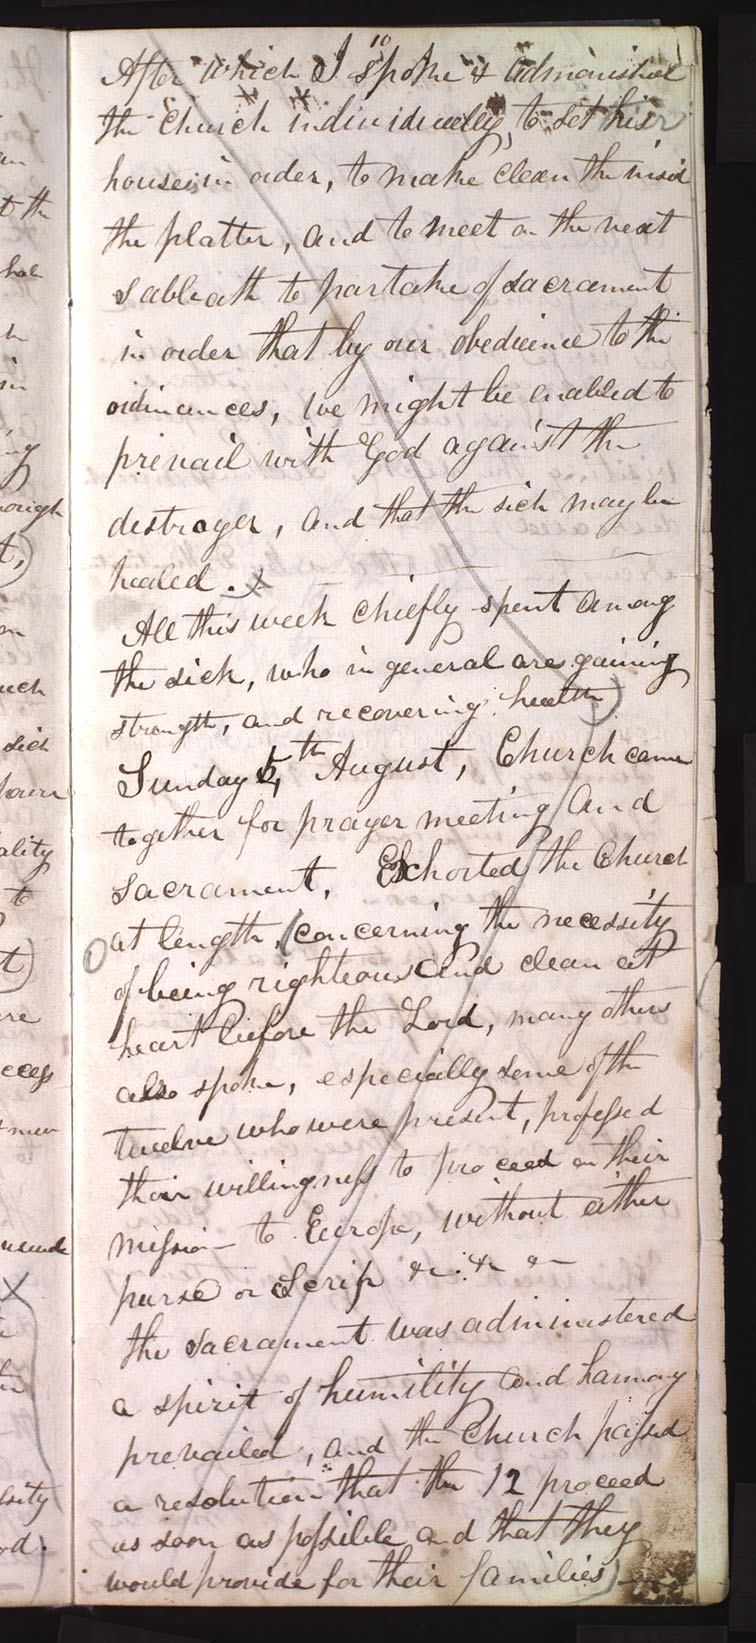 10
After which I spoke & admonished
the Church individually, to set his
house in order, to make clean the inside
the platter, and to meet on the next
Sabbath to partake of sacrament
in order that by our obedience to the
ordinances, we might be enabled to
prevail with God against the
destroyer, and that the sick may be
healed.
All this week chiefly spent among
the sick, who in general are gaining
strength, and recovering health)
Sunday 5,th August, Church came
together for prayer meeting and
sacrament, Exhorted the Church
at length, (concerning the necessity
of being righteous and clean at
heart before the Lord, many others
also spoke, especially some of the
twelve who were present, professed
their willingness to proceed on their
mission to Europe, without either
purse or Scrip &c. &c &c
the Sacrament was administered
a spirit of humility and harmony
prevailed, and the Church passed
a resolution that the 12 proceed
as soon as possible and that they
would provide for their families)